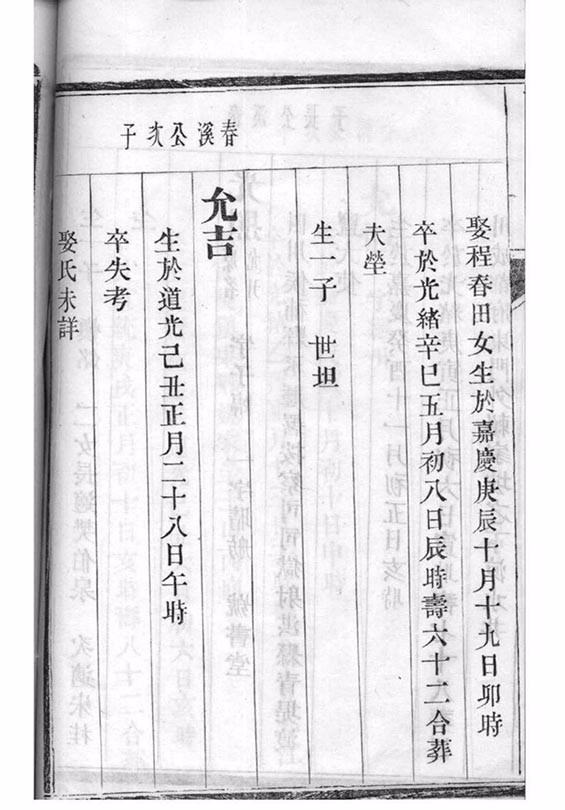 娶程春田女生於嘉慶庚辰十月十九日卯時
卒於光緒辛巳五月初八日辰時壽六十二合葬
夫塋
生一子 世坦
春溪公次子
允吉
生於道光己丑正月二十八日午時
卒失考
娶氏未詳